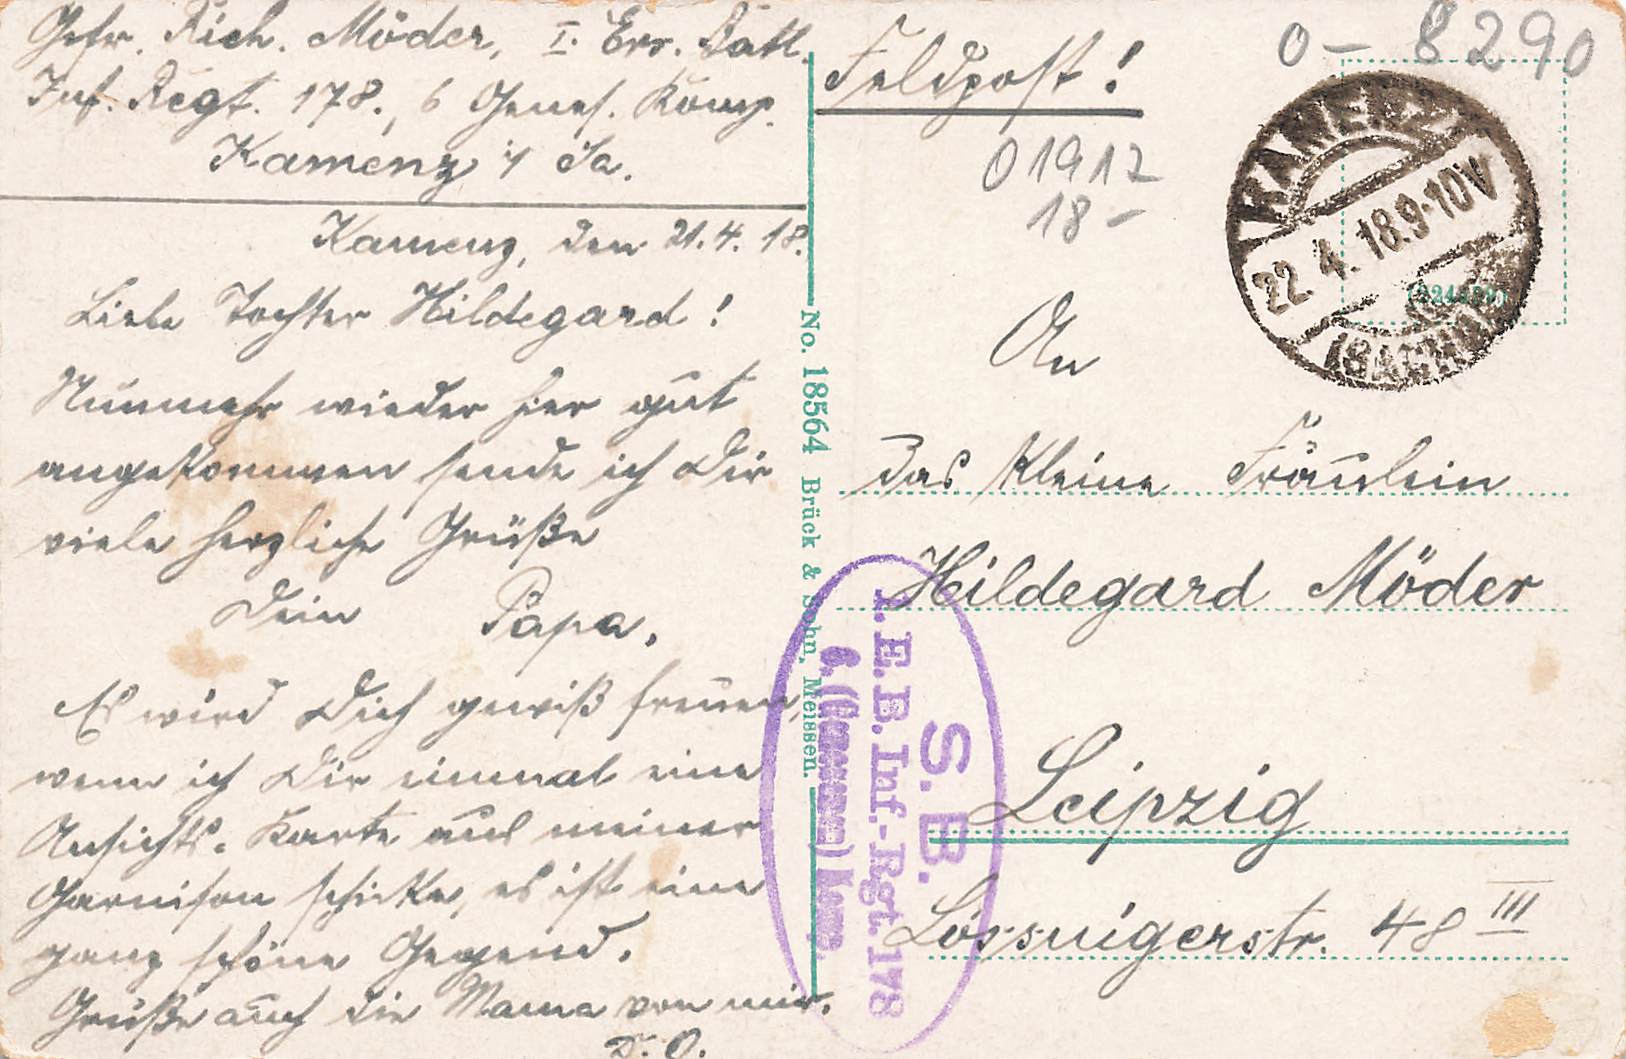 Gefr. Rich. Möder, I. Ers. Batl.
Inf. Regt. 178., 6 Genes. Komp.
Kamenz i/ Sa.
Kamenz, den 21.4.18.
Liebe Tochter Hildegard!
Nunmehr wieder hier gut
angekommen sende ich Dir
viele herzliche Grüße
Dein Papa.
Es wird Dich gewiß freuen,
wenn ich Dir einmal eine
Ansichts-Karte aus meiner
Garnison schicke, es ist eine
ganz schöne Gegend.
Grüße auch die Mama von mir.
D. O.
No. 18564 Brück & Sohn, Meissen.
Feldpost!
0-8290
01917
18-
KAMENZ
22.4.18.9-10V
(SACHSEN)
An
das kleine Fräulein
Hildegard Möder
Leipzig
Lössnigerstr. 48 III
S. B.
I. E. B. Inf.-Rgt. 178
6. (Genesenen) Komp.